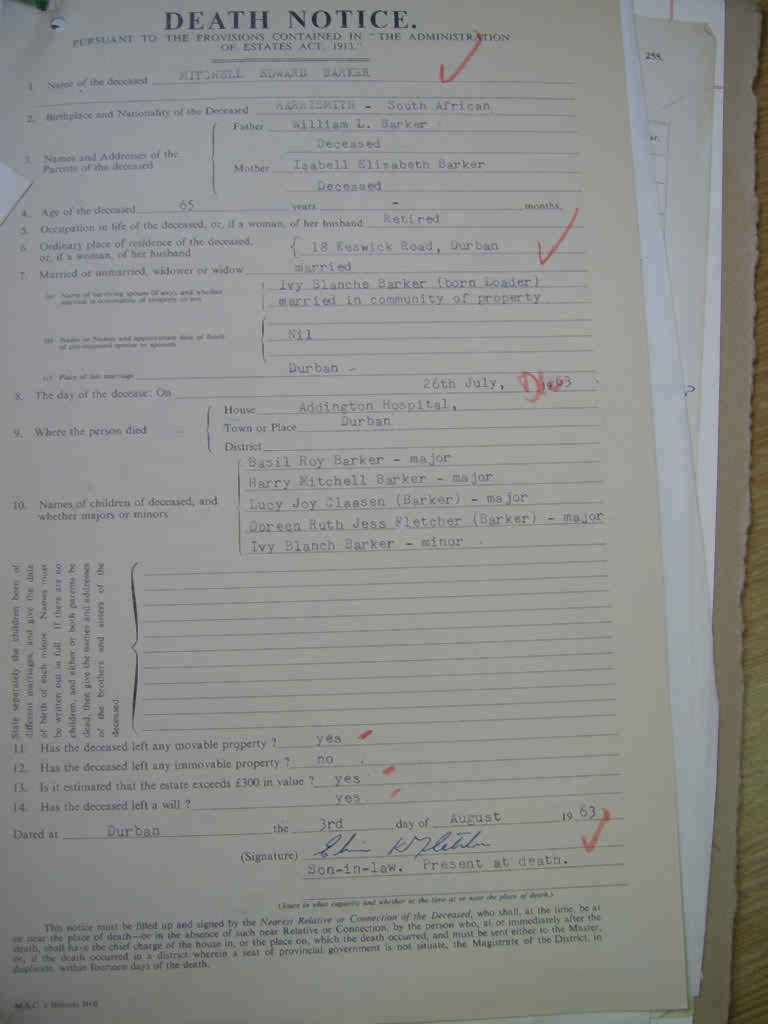 DEATH NOTICE.
PURSUANT TO THE PROVISIONS CONTAINED IN "THE ADMINISTRATION
OF ESTATES ACT, 1913."
1. Name of the deceased MITCHELL EDWARD BARKER
2. Birthplace and Nationality of the Deceased HARRISMITH - South African
3. Names and Addresses of the Parents of the deceased
Father William L. Barker
Deceased
Mother Isabell Elizabeth Barker
Deceased
4. Age of the deceased 65 years - months.
5. Occupation in life of the deceased, or, if a woman, of her husband Retired
6. Ordinary place of residence of the deceased,
or, if a woman, of her husband 18 Keswick Road, Durban
7. Married or unmarried, widower or widow married
(a) Name of surviving spouse (if any), and whether
married in community of property or not
Ivy Blanche Barker (born Loader)
married in community of property
(b) Name or Names and approximate date of death
of pre-deceased spouse or spouses
Nil
(c) Place of last marriage Durban -
8. The day of the decease: On 26th July, 1963
9. Where the person died
House Addington Hospital,
Town or Place Durban
District
10. Names of children of deceased, and
whether majors or minors
Basil Roy Barker - major
Harry Mitchell Barker - major
Lucy Joy Claasen (Barker) - major
Doreen Ruth Jess Fletcher (Barker) - major
Ivy Blanch Barker - minor
State separately the children born of
different marriages, and give the date
of birth of each minor. Names must
be written out in full. If there are no
children, and either or both parents be
dead, then give the names and addresses
of the brothers and sisters of the
deceased
11. Has the deceased left any movable property ? yes
12. Has the deceased left any immovable property ? no
13. Is it estimated that the estate exceeds £300 in value ? yes
14. Has the deceased left a will ? yes
Dated at Durban the 3rd day of August 1963
(Signature)
Son-in-law. Present at death.
(State in what capacity and whether at the time at or near the place of death.)
This notice must be filled up and signed by the Nearest Relative or Connection of the Deceased, who shall, at the time, be at
or near the place of death—or in the absence of such near Relative or Connection, by the person who, at or immediately after the
death, shall have the chief charge of the house in, or the place on, which the death occurred, and must be sent either to the Master,
or, if the death occurred in a district wherein a seat of provincial government is not situate, the Magistrate of the District, in
duplicate, within fourteen days of the death.
255.